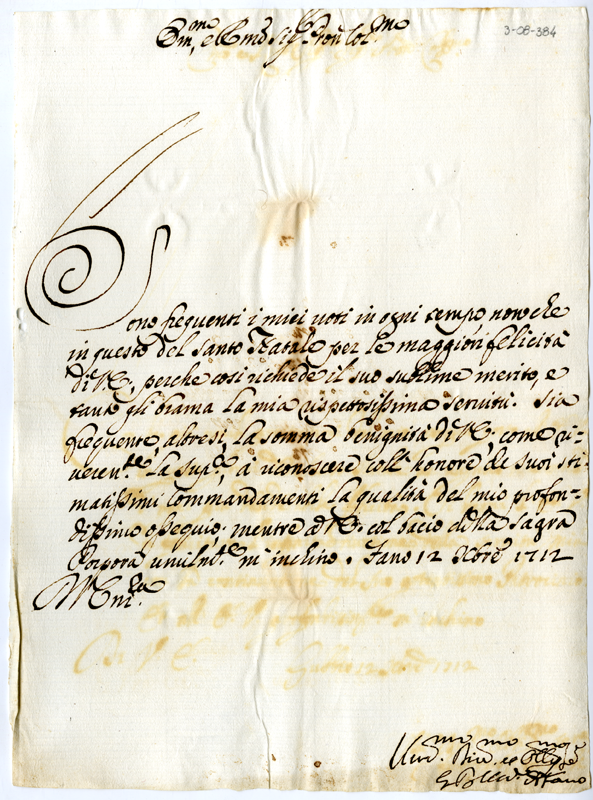 Em.mo, e R.mo Sig.r Pron Col.mo
3-08-384
Sono frequenti i miei voti in ogni tempo non che
in questo del Santo Natale per le maggiori felicità
di V.E., perche così richiede il suo sublime merito, e
tanto gli brama la mia rispettosissima servitù. Sia
frequente, altresi, la somma benignità di V.E. come ri-
veren.te la sup.co, à riconoscere coll'honore de suoi sti-
matissimi commandamenti la qualità del mio profon-
dissimo ossequio; mentre ad V.E. col bacio della Sagra
Porpora umilm.te m'inchino. Fano 12 Xbre 1712
Di V. Em.za
Um.mo Di.mo et Obblig.mo
Vesc.o di Fano